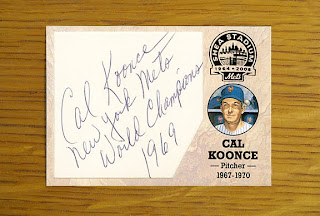 Cal Koonce
New York Mets
World Champions
1969
SHEA STADIUM
1964 • 2008
Mets
CAL
KOONCE
Pitcher
1967-1970